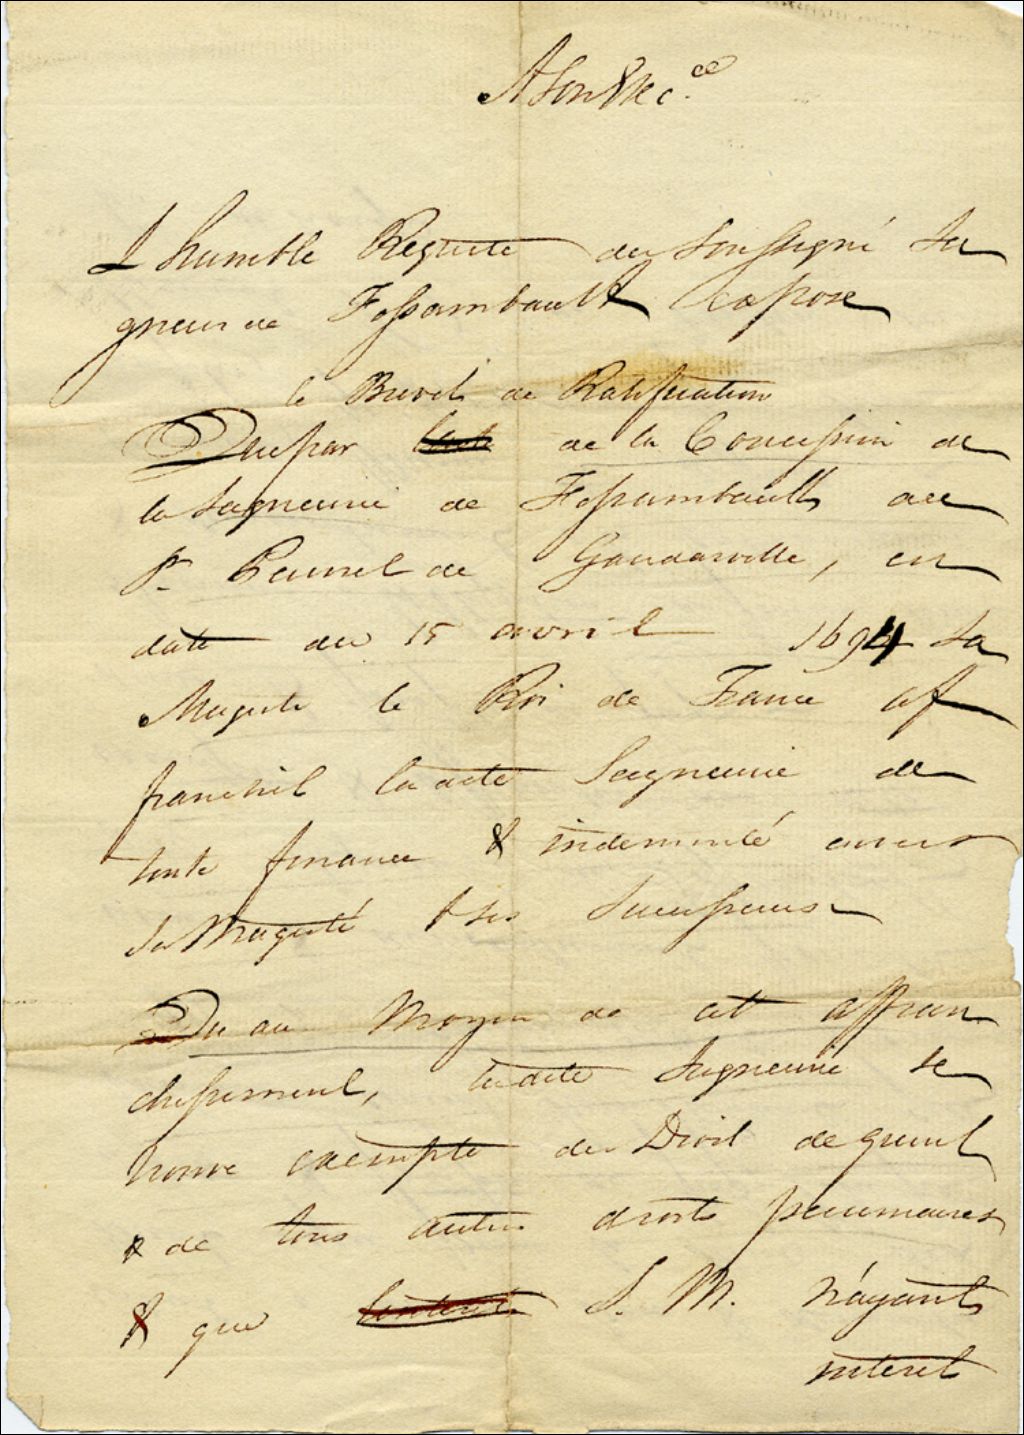 A Son Exc.ce
L humble Requete du Soussigné Sei
gneur de Fossambault expose
le Brevet de Ratification
Que par de la Concession de
la Seigneurie de Fossambault au
Sr. Peuvret de Gaudarville, en
date du 15 avril 1694 Sa
Majesté le Roi de France af
franchit ladite Seigneurie de
toute finance & indemnité envers
Sa Majesté & ses Successeurs
Qu au moyen de cet affran
chissement, ladite Seigneurie se
trouve exempte du Droit de quint
& de tous autres droits pecuniaires
& que S. M. n'ayant
interet